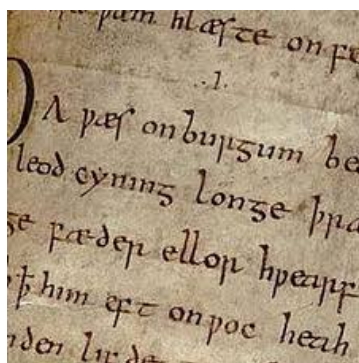 þæm hlæste onfe
.I.
ÐA ƿæs onburgum be
leod cyning longe þra
ge fæder ellor hƿearf
ꝥ him eft onƿoc heah
nden lifde